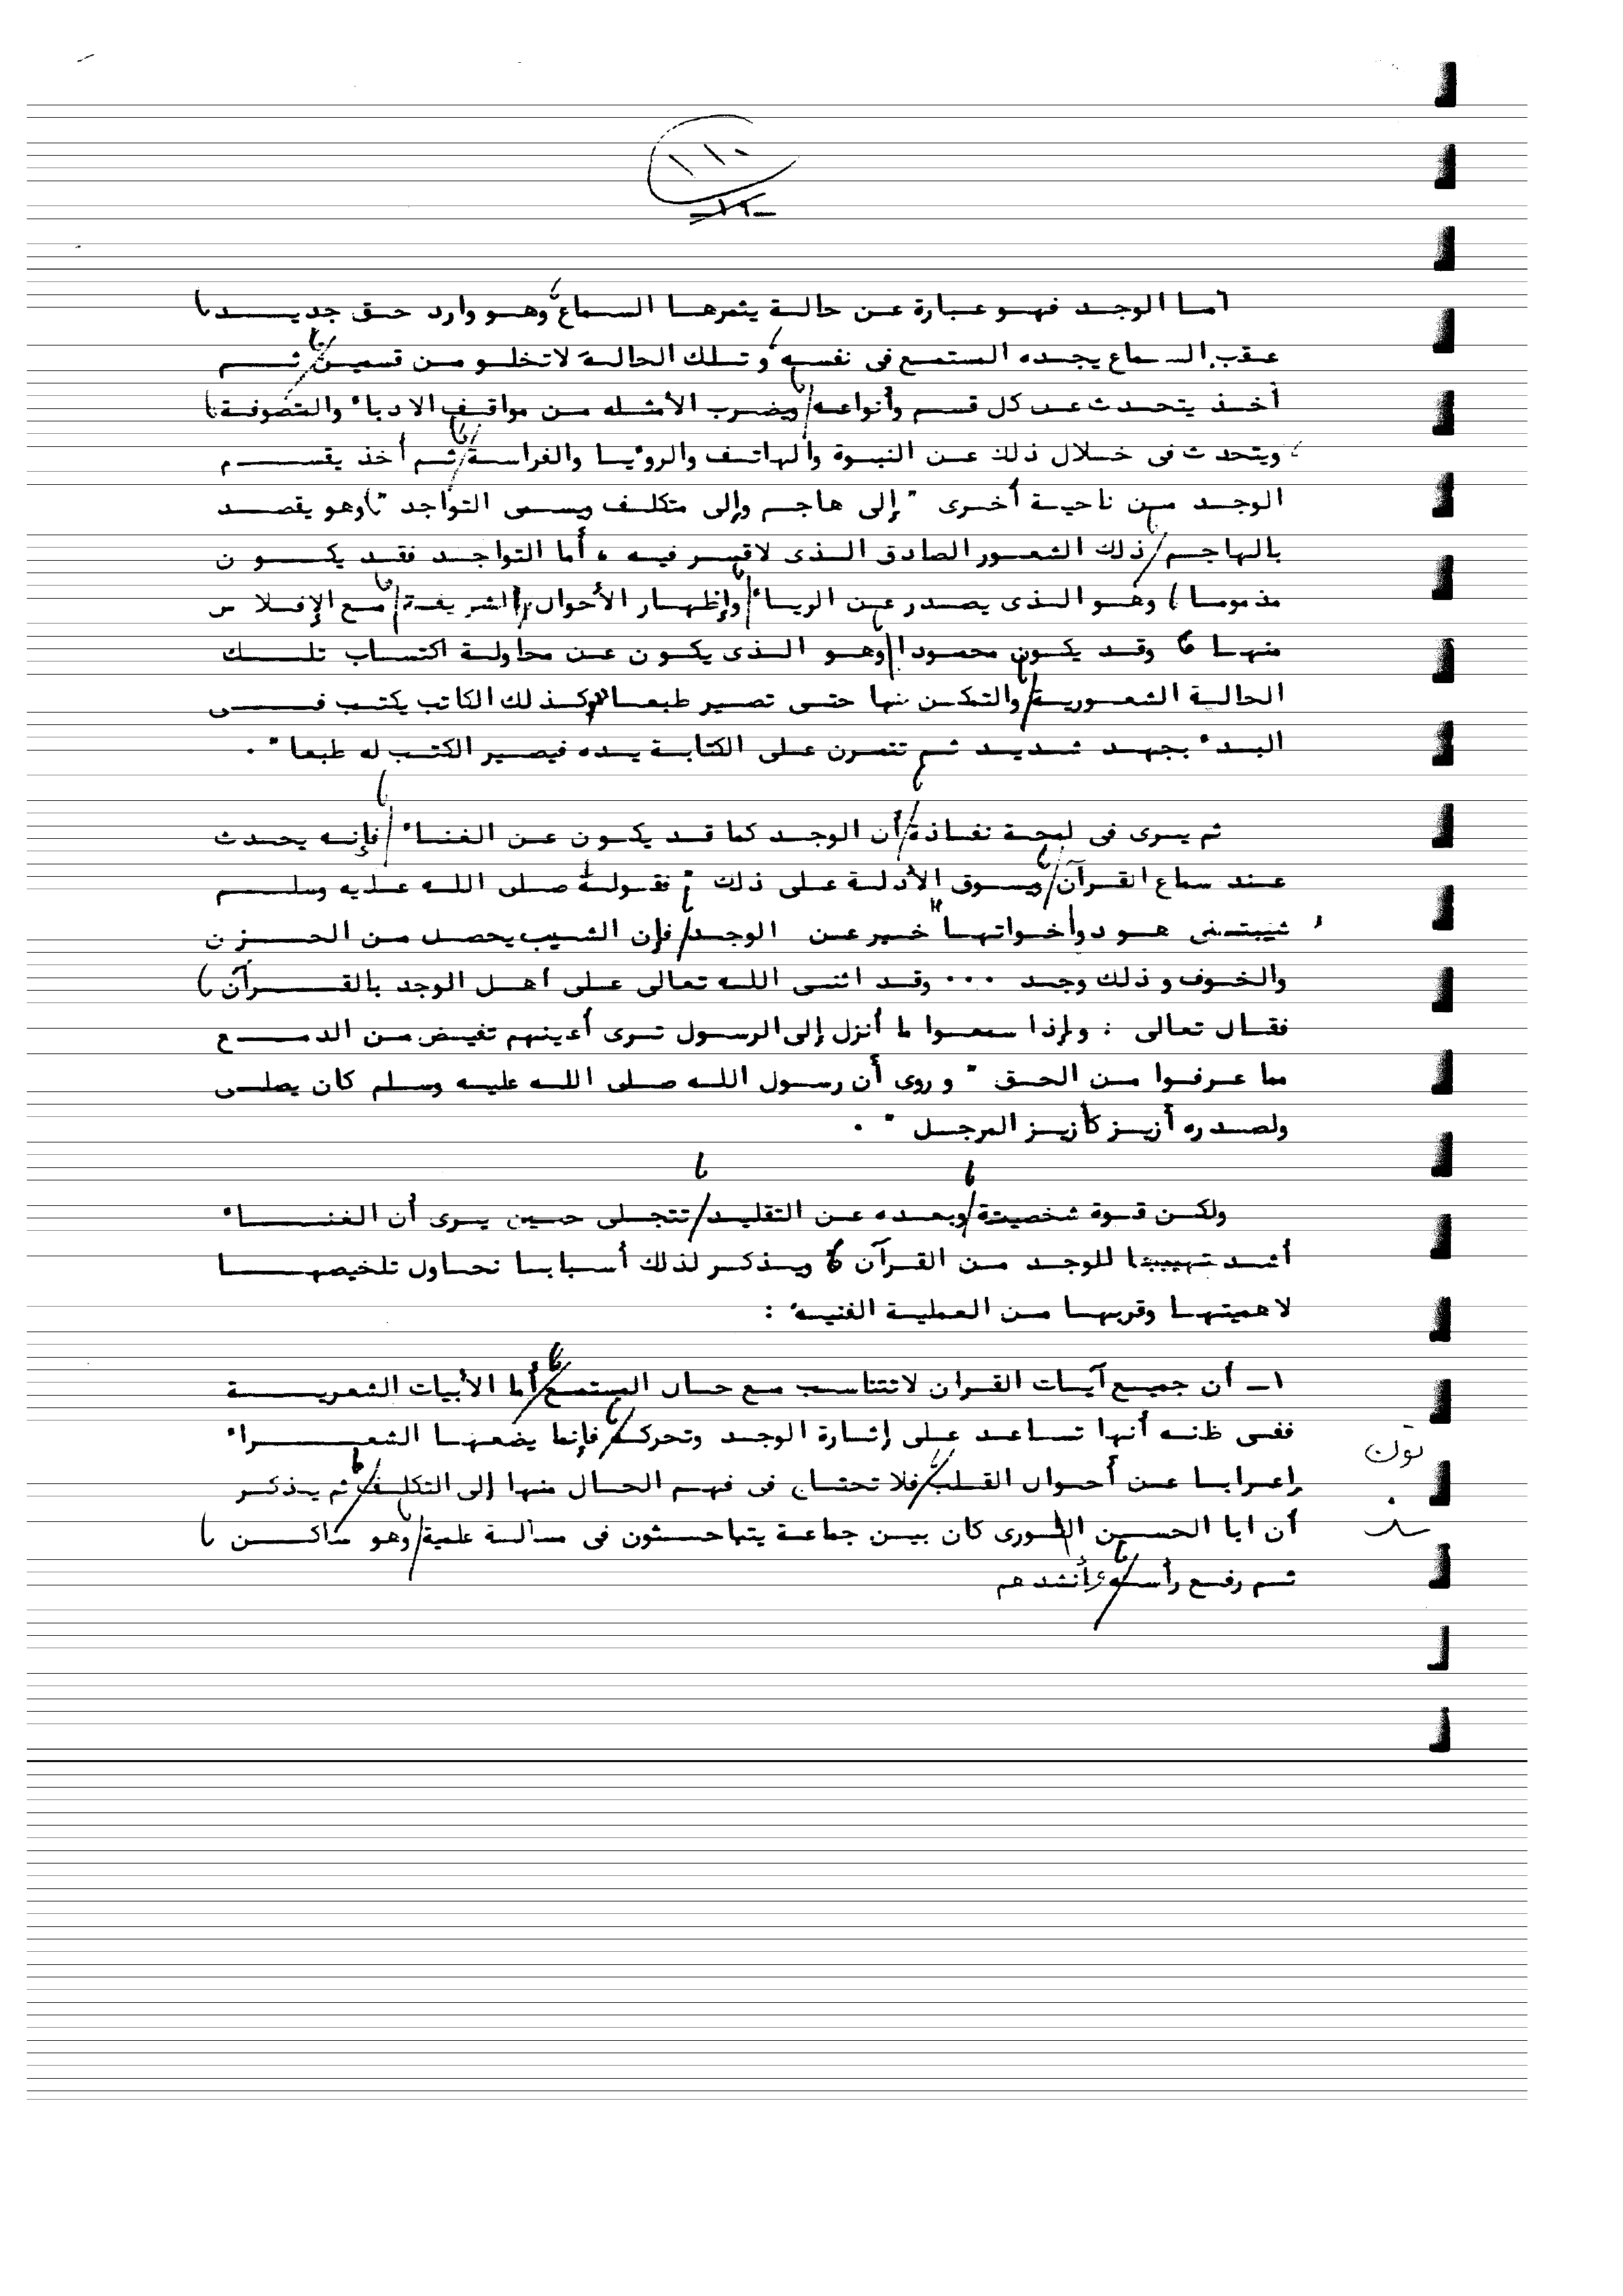 ١١٠
-١٩-
أما الوجد فهو عبارة عن حالة يثمرها السماع، وهو وارد حق جديد،
عقب السماع يجده المستمع فى نفسه، وتلك الحالة لاتخلو من قسمين، ثم
أخذ يتحدث عن كل قسم وأنواعه، ويضرب الأمثله من مواقف الادباء والمتصوفة،
ويتحدث فى خلال ذلك عن النبوة والهاتف والروءيا والفراسة، ثم أخذ يقسم
الوجد من ناحية أخرى " إلى هاجم وإلى متكلف ويسمى التواجد "، وهو يقصد
بالهاجم، ذلك الشعور الصادق الذى لاقسر فيه ، أما التواجد فقد يكون
مذموما، وهو الذى يصدر عن الرياء، وإظهار الأحوال الشريفة، مع الإفلاس
منها، وقد يكون محمودا، وهو الذى يكون عن محاولة اكتساب تلك
الحالة الشعورية، والتمكن منها حتى تصير طبعا "وكذلك الكاتب يكتب فى
البدء بجهد شديد ثم تتمرن على الكتابة يده فيصير الكتب له طبعا " .
ثم يرى فى لمحة نفاذة، أن الوجد كما قد يكون عن الغناء، فإنه يحدث
عند سماع القرآن، ويسوق الأدلة على ذلك ؛ فقوله صلى الله عليه وسلم
شيبتنى هود وأخواتها" خبر عن الوجد، فإن الشيب يحصل من الحزن
والخوف وذلك وجد ... وقد اثنى الله تعالى على أهل الوجد بالقرآن،
فقال تعالى : وإذا سمعوا ما أنزل إلى الرسول ترى أعينهم تفيض من الدمع
مما عرفوا من الحق " وروى أن رسول الله صلى الله عليه وسلم كان يصلى
ولصدره أزيز كأزيز المرجل " .
ولكن قوة شخصيته، وبعده عن التقليد، تتجلى حين يرى أن الغناء
أشد تهييجا للوجد من القرآن، ويذكر لذلك أسبابا نحاول تلخيصها
لاهميتها وقربها من العملية الفنيه :
١- أن جميع آيات القران لاتتناسب مع حال المستمع، أما الأبيات الشعرية
ففى ظنه أنها تساعد على إثارة الوجد وتحركه، فإنما يضعها الشعراء
إعرابا عن أحوال القلب، فلا تحتاج فى فهم الحال منها إلى التكلف، ثم يذكر
أن ابا الحسن النورى كان بين جماعة يتباحثون فى مسالة علمية، وهو ساكن،
ثم رفع رأسه، وأنشدهم